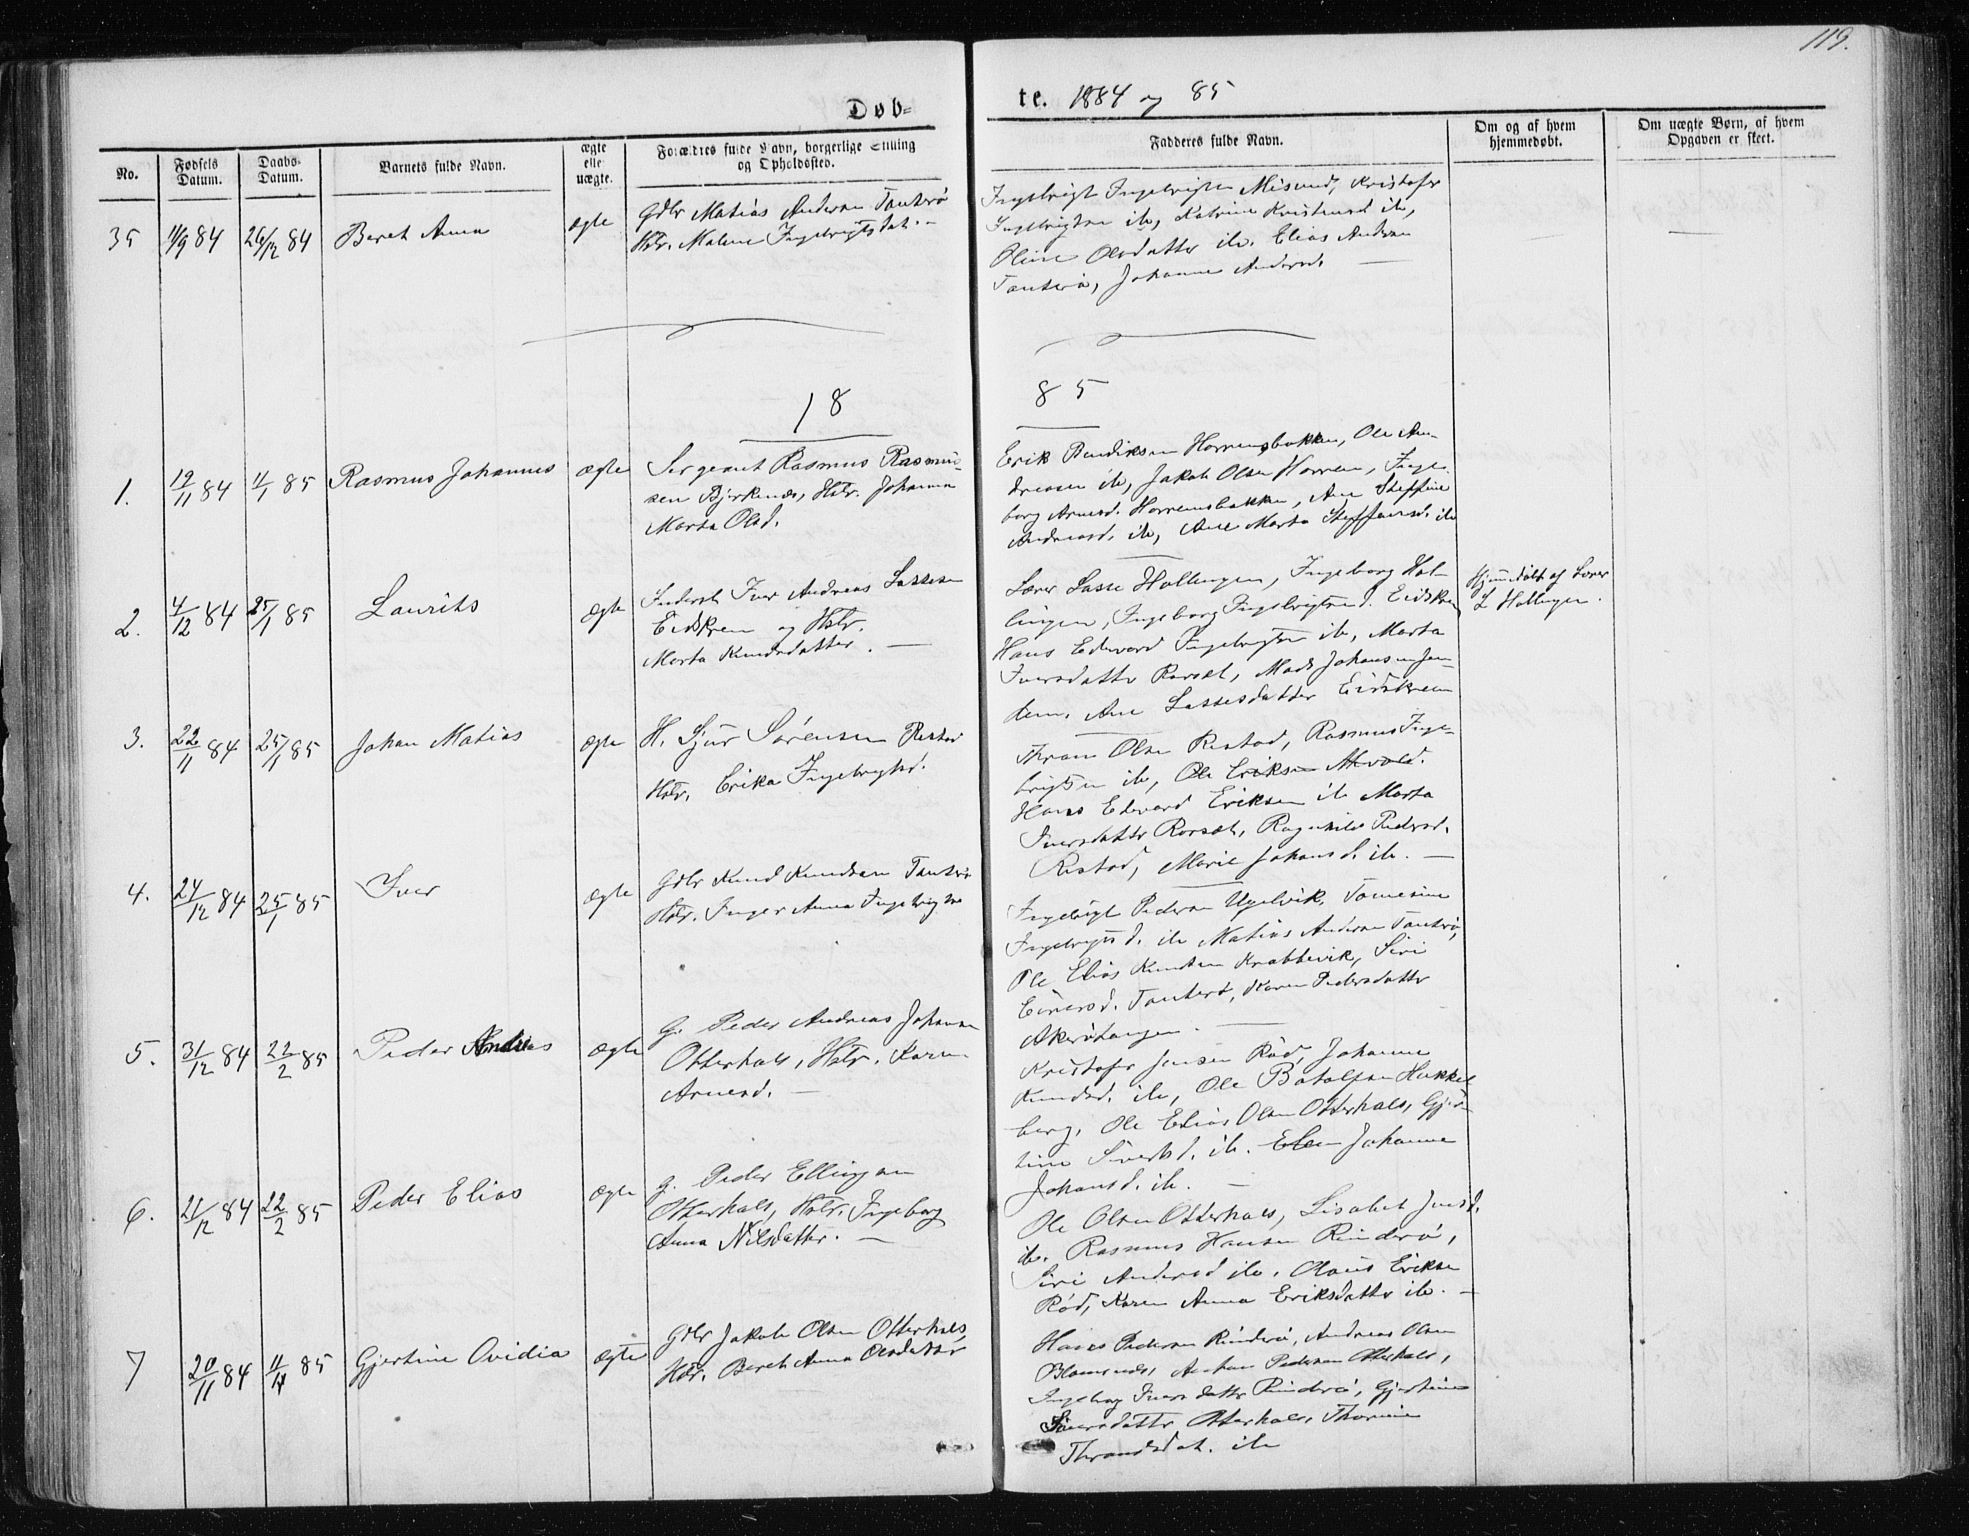 119.
Døb=
te. 1884 og 85
No.
Fødsels Datum.
Daabs- Datum.
Barnets fulde Navn.
ægte eller uægte.
Forældres fulde Navn, borgerlige Stilling og Opholdssted.
Fadderes fulde Navn.
Om og af hvem hjemmedøbt.
Om uægte Børn, af hvem Opgaven er skeet.
35 11/9 84 26/12 84 Beret Anna ægte
Gdbr Matias Andersen Tautrø
Hstr. Malene Ingebrigtsdat. —
Ingebrigt Ingebrigtsen Misund, Kristofer
Ingebrigtsen ib, Katrine Kristensd ib,
Oline Olsdatter ib. Elias Andersen
Tauterø, Johanne Andersd. —
18
85
1. 19/11 84 11/1 85 Rasmus Johannes ægte
Sergeant Rasmus Rasmus-
sen Bjerknes, Hstr. Johanna
Marta Olsd.
Erik Bendiksen Horremsbakken, Ole An-
dreasen ib, Jakob Olsen Horrem, Inge-
borg Arnesd. Horremsbakken, Ane Steffine
Andreasd. ib, Ane Marta Steffensd. ib
2. 4/12 84 25/1 85 Laurits ægte
Inderst Iver Andreas Lassesen
Eidskrem og Hstr.
Marta Knudsdatter. —
Lærer Lasse Hollingen, Ingeborg Hol-
lingen, Ingeborg Ingebrigtsd. Eidskrem
Hans Edevard Ingebrigtsen ib, Marta
Iversdatter Rorset, Mads Johansen
Ane Lassesdatter Eidskrem
Hjemmedøbt af Lærer
L Hollingen.
3. 22/11 84 25/1 85 Johan Matias ægte
H. Sjur Sørensen Restad
Hstr. Erika Ingebrigtsd.
Thron Olsen Ristad, Rasmus Inge-
brigtsen ib, Ole Eriksen
Hans Edevard Eriksen ib Marta
Iversdatter Rorset, Ragnhild Pedersd.
Ristad, Marie Johansd. ib. —
4. 24/12 84 25/1 85 Iver ægte
Gdbr Knud Knudsen Tauterø
Hstr. Inger Anna Ingebrigtsd
Ingebrigt Pedersen Ugelvik, Tomesine
Ingebrigtsd. ib Matias Andersen Tauterø,
Ole Elias Knudsen Krabbevik, Siri
Einersd. Tauterø, Karen Pedersdatter
Akerøtangen. —
5. 31/12 84 22/2 85 Peder Andreas ægte
G. Peder Andreas Johansen
Otterhals, Hstr. Karen
Arnesd. —
Kristofer Jensen Rød, Johanne
Knudsd. ib, Ole Botolfsen Hukkel-
berg, Ole Elias Olsen Otterhals, Gjer-
tine Sivertsd. ib. Elen Johanne
Johansd. ib. —
6. 21/12 84 22/2 85 Peder Elias ægte
g. Peder Ellingsen
Otterhals, Hstr. Ingeborg
Anna Nilsdatter. —
Ole Olsen Otterhals, Lisabet Jensd.
ib. Rasmus Hansen Rinderø,
Siri Andersd ib. Olaus Eriksen
Rød, Karen Anna Eriksdatter ib. —
7 20/11 84 11/4 85 Gjertine Ovidia ægte
Gdbr Jakob Olsen Otterhals,
Hstr. Beret Anna Olsdatter
Hans Pedersen Rinderø, Andreas Olsen
Blomsnes, Anton Pedersen Otterhals,
Ingeborg Iversdatter Rinderø, Gjertine
Siversdatter Otterhals, Thorine
Throndsdat. ib